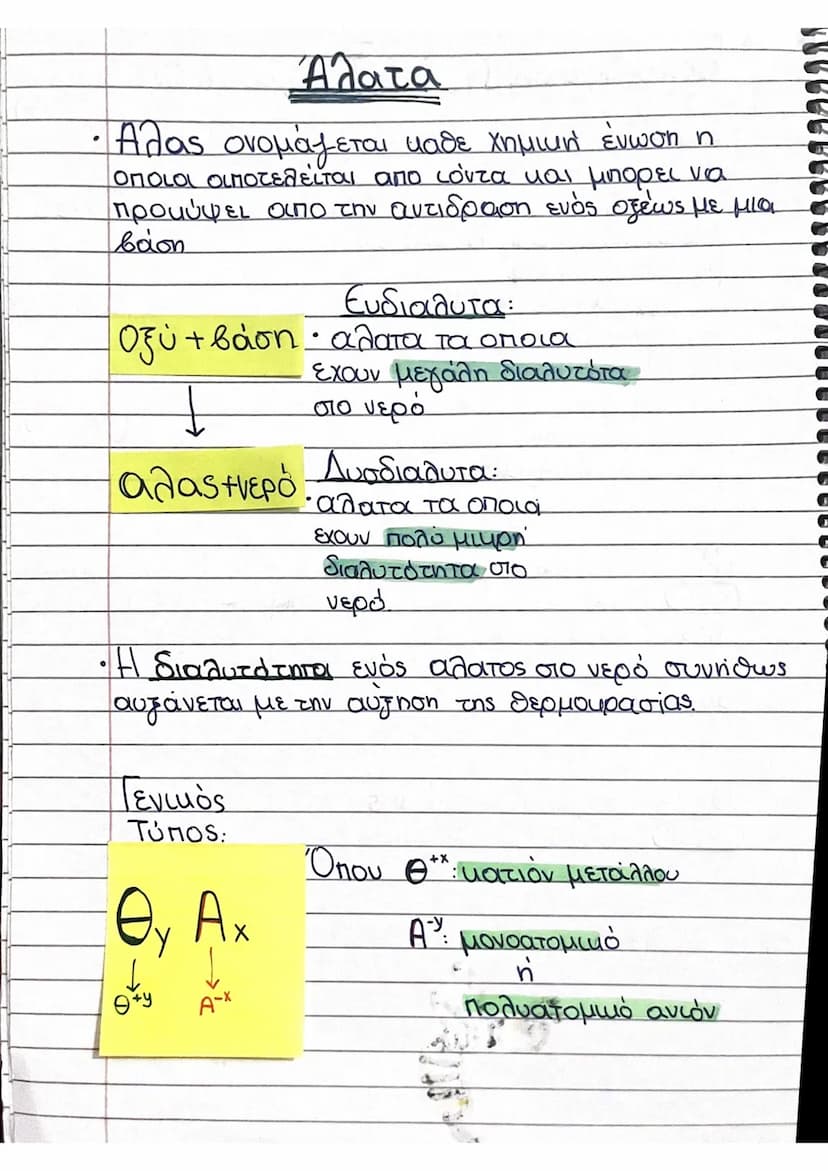 Άλατα
· Αλας ονομάζεται καθε χημική ένωση η
οποια αποτελείται απο ιόντα και μπορει να
προκύψει απο την αντιδραση ενός οξέως με μια
βάση
Οξύ + βάση
↓
αλας+νερό
Ευδιαλυτα:
· αλατα τα οποια
εχουν μεγάλη διαλυτότα
στο νερό
Δυσδιαλυτα:
· αλατα τα οποια
εχουν πολύ μικρή
διαλυτότητα στο
νερό.
· Η διαλυτότητα ενός αλατος στο νερό συνήθως
αυξάνεται με την αύξηση της θερμοκρασίας.
Γενικός
Τύπος:
Θy Ax
↓ ↓
Θ+y A-x
Όπου Θ+x: κατιόν μετάλλου
A-y: μονοατομικό
ή
πολυατομικό ανιόν